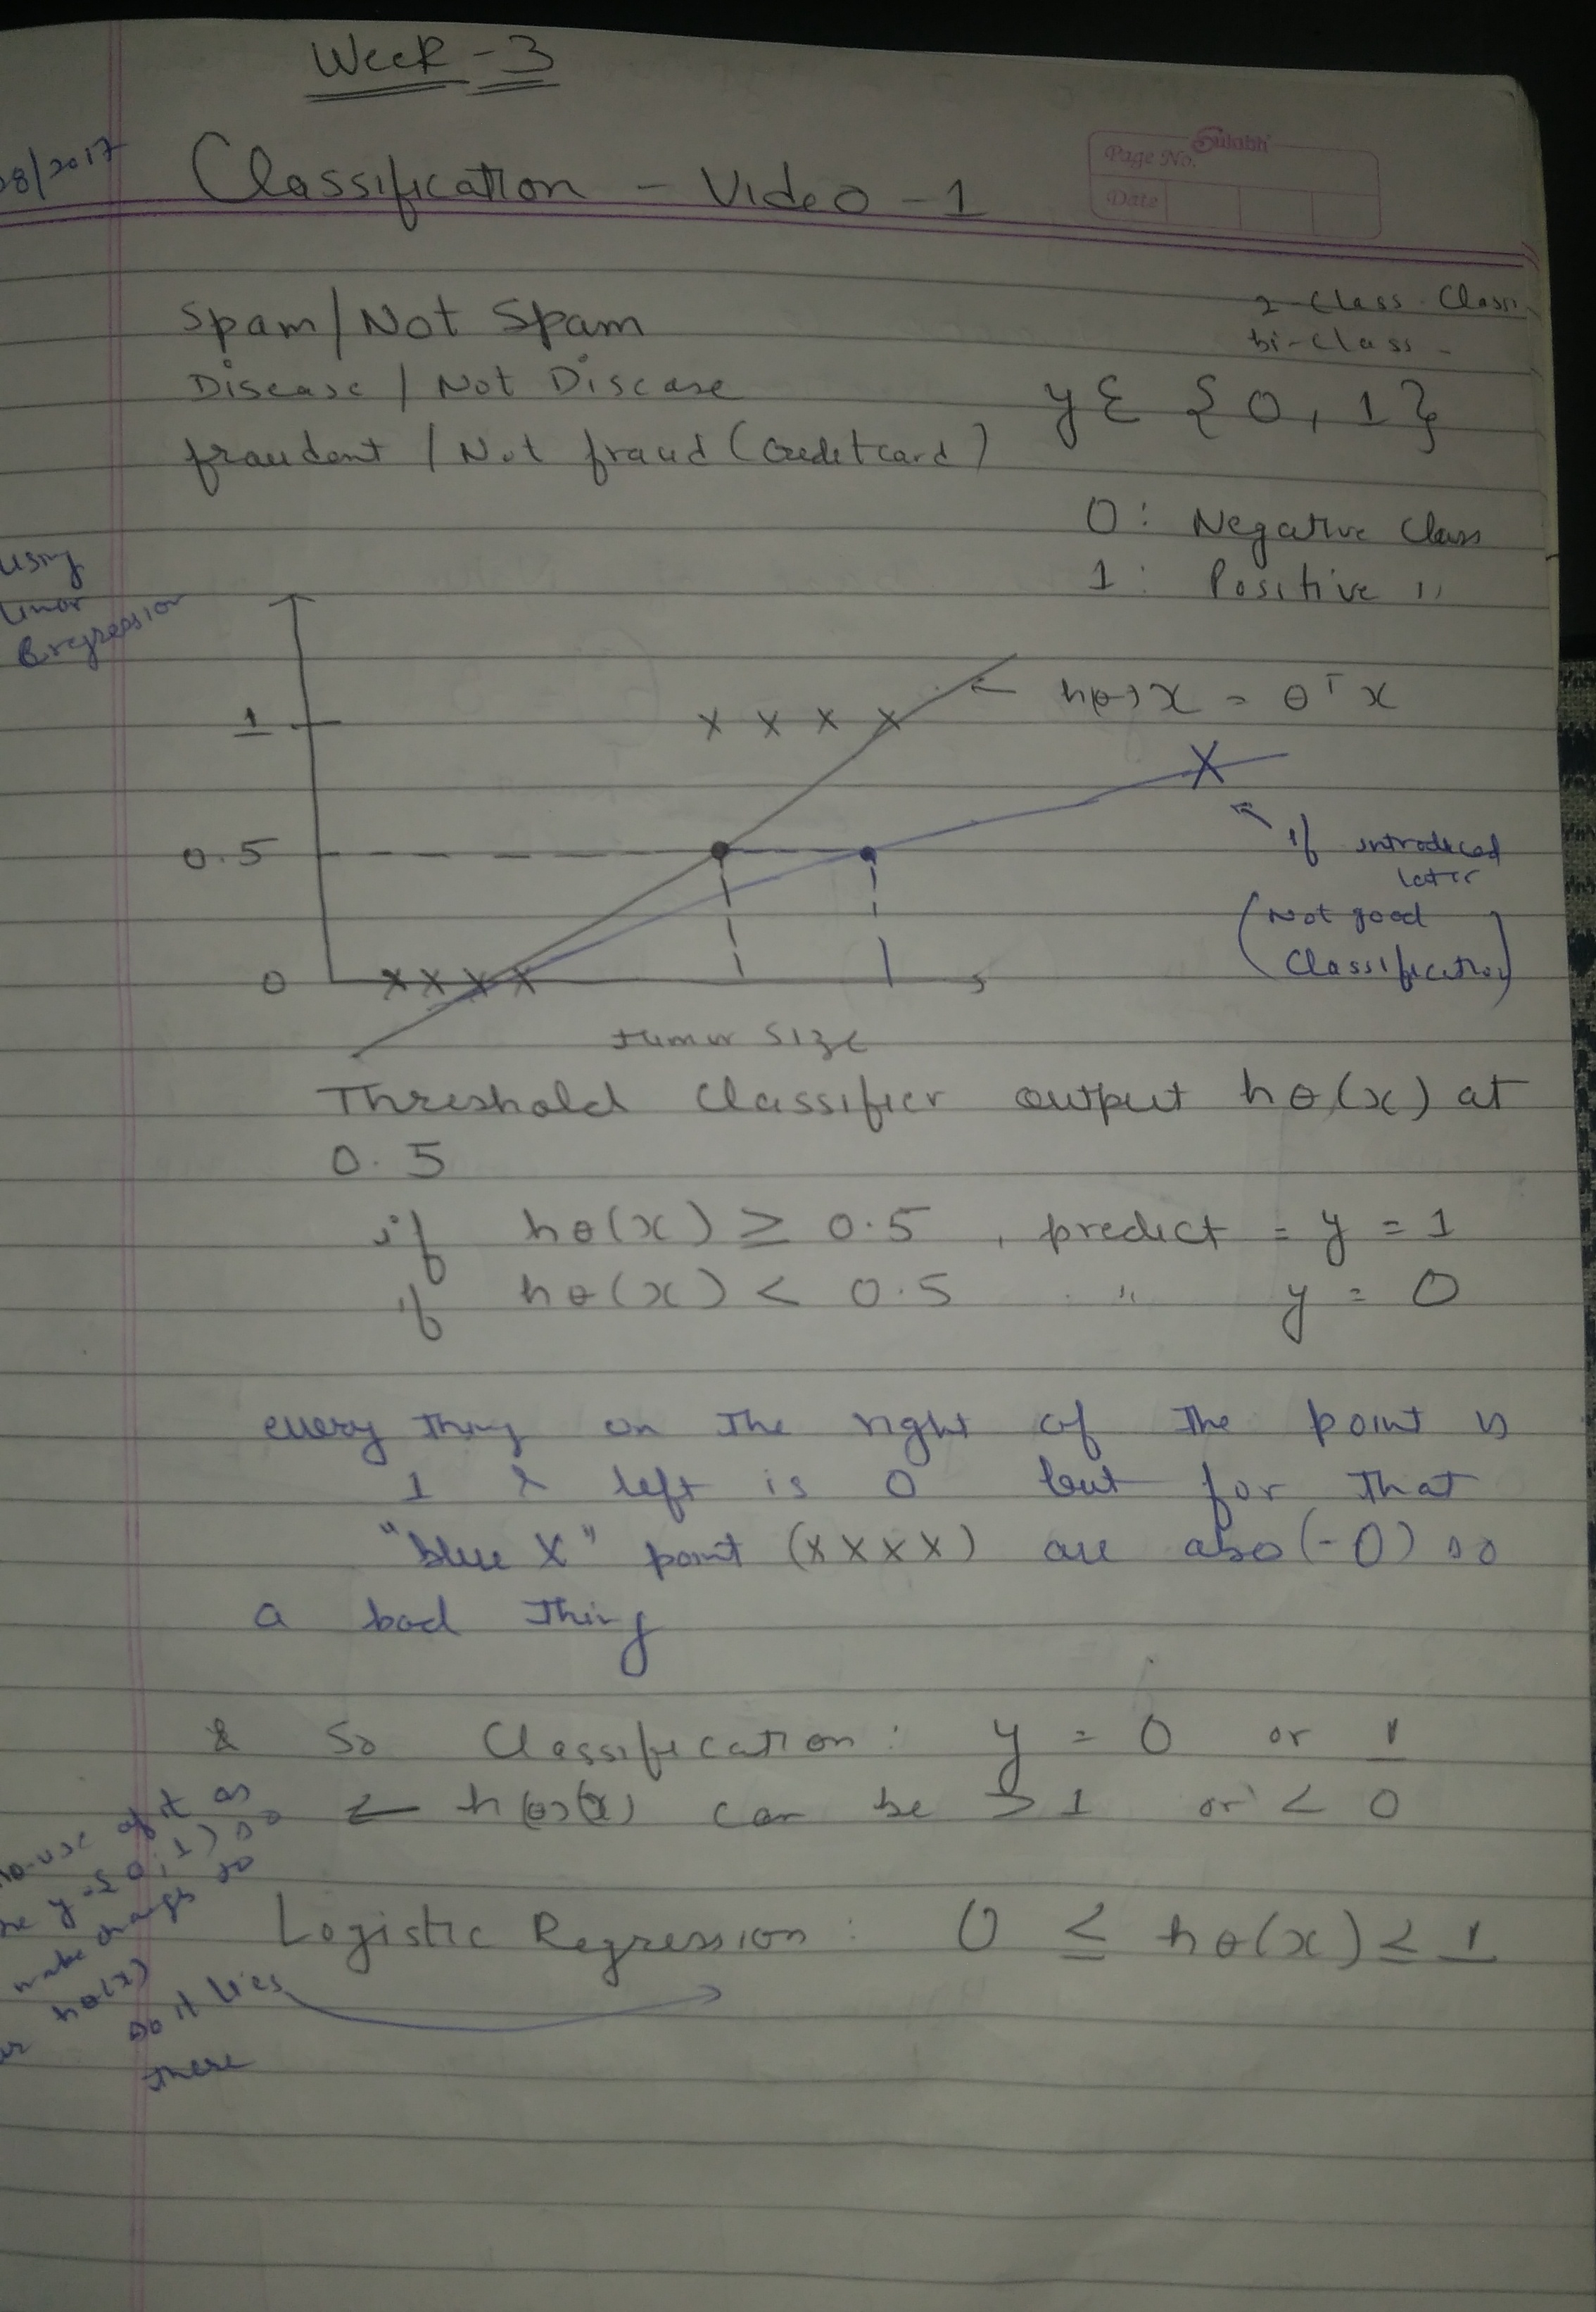 Week - 3
08/2017
Classification - Video - 1
Sulabh
Page No.
Date
Spam / Not Spam
2-Class Classi
bi-class -
Disease / Not Disease
y ε { 0, 1 }
fraudent / Not fraud (Credit card)
0 : Negative Class
1 : Positive "
using
linear
Regression
1
x x x x
h(θ)x = θᵀx
X
0.5
if introduced
later
(Not good
Classification)
0
x x x x
tumor size
Threshold Classifier output hθ(x) at
0.5
if hθ(x) ≥ 0.5 , predict = y = 1
if hθ(x) < 0.5 " y = 0
every thing on the right of the point is
1 & left is 0 but for that
"blue X" point (x x x x) are also (-0) so
a bad thing
& So Classification : y = 0 or 1
← h(θ)(x) can be > 1 or < 0
no-use of it as
y = {0, 1} so
make changes so
hθ(x)
so it lies
there
Logistic Regression : 0 ≤ hθ(x) ≤ 1